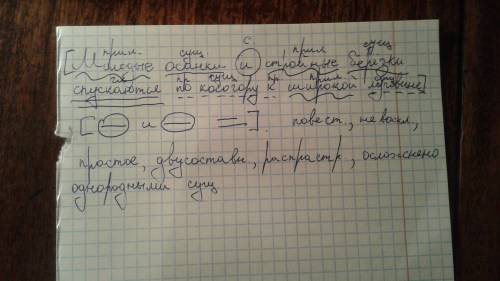 с
прил. сущ прил сущ
[Молодые осинки и стройные берёзки
гл пр сущ пр. прил. сущ
спускаются по косогору к широкой луговине]
[ и ]. повест., невоскл,
простое, двусоставн., распрастр., осложнено
однородными сущ